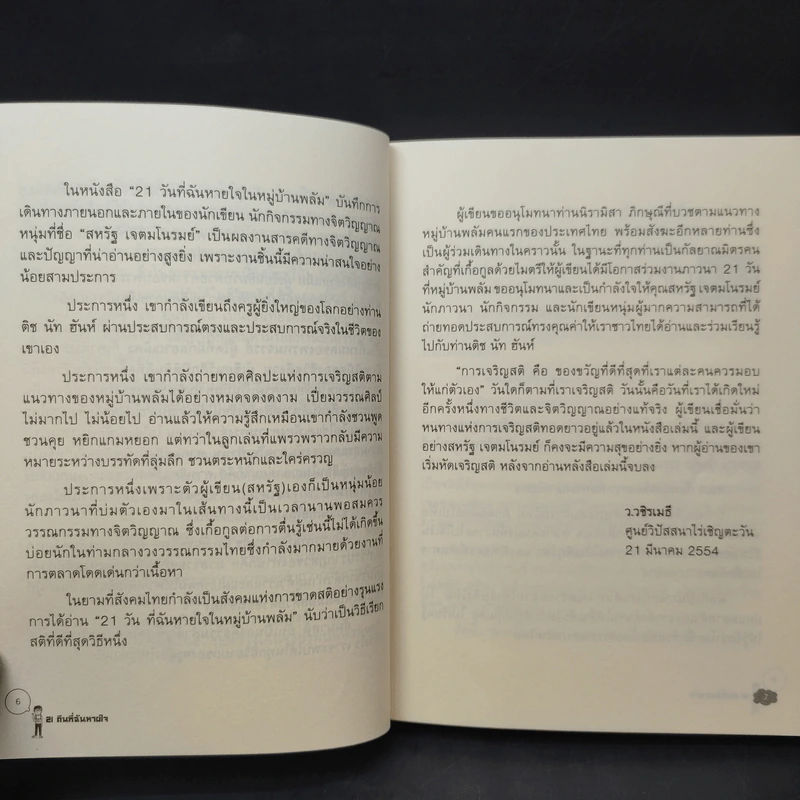 ในหนังสือ “21 วันที่ฉันหายใจในหมู่บ้านพลัม” บันทึกการ
เดินทางภายนอกและภายในของนักเขียน นักกิจกรรมทางจิตวิญญาณ
หนุ่มที่ชื่อ “สหรัฐ เจตมโนรมย์” เป็นผลงานสารคดีทางจิตวิญญาณ
และปัญญาที่น่าอ่านอย่างสูงยิ่ง เพราะงานชิ้นนี้มีความน่าสนใจอย่าง
น้อยสามประการ
ประการหนึ่ง เขากำลังเขียนถึงครูผู้ยิ่งใหญ่ของโลกอย่างท่าน
ติช นัท ฮันห์ ผ่านประสบการณ์ตรงและประสบการณ์จริงในชีวิตของ
เขาเอง
ประการหนึ่ง เขากำลังถ่ายทอดศิลปะแห่งการเจริญสติตาม
แนวทางของหมู่บ้านพลัมได้อย่างหมดจดงดงาม เปี่ยมวรรณศิลป์
ไม่มากไป ไม่น้อยไป อ่านแล้วให้ความรู้สึกเหมือนเขากำลังชวนพูด
ชวนคุย หยิกแกมหยอก แต่ทว่าในลูกเล่นที่แพรวพราวกลับมีความ
หมายระหว่างบรรทัดที่ลุ่มลึก ชวนตระหนักและใคร่ครวญ
ประการหนึ่งเพราะตัวผู้เขียน(สหรัฐ)เองก็เป็นหนุ่มน้อย
นักภาวนาที่บ่มตัวเองมาในเส้นทางนี้เป็นเวลานานพอสมควร
วรรณกรรมทางจิตวิญญาณ ซึ่งเกื้อกูลต่อการตื่นรู้เช่นนี้ไม่ได้เกิดขึ้น
บ่อยนักในท่ามกลางวงวรรณกรรมไทยซึ่งกำลังมากมายด้วยงานที่
การตลาดโดดเด่นกว่าเนื้อหา
ในยามที่สังคมไทยกำลังเป็นสังคมแห่งการขาดสติอย่างรุนแรง
การได้อ่าน “21 วัน ที่ฉันหายใจในหมู่บ้านพลัม” นับว่าเป็นวิธีเรียก
สติที่ดีที่สุดวิธีหนึ่ง
6
ผู้เขียนขออนุโมทนาท่านนิรามิสา ภิกษุณีที่บวชตามแนวทาง
หมู่บ้านพลัมคนแรกของประเทศไทย พร้อมสังฆะอีกหลายท่านซึ่ง
เป็นผู้ร่วมเดินทางในคราวนั้น ในฐานะที่ทุกท่านเป็นกัลยาณมิตรคน
สำคัญที่เกื้อกูลด้วยไมตรีให้ผู้เขียนได้มีโอกาสร่วมงานภาวนา 21 วัน
ที่หมู่บ้านพลัม ขออนุโมทนาและเป็นกำลังใจให้คุณสหรัฐ เจตมโนรมย์
นักภาวนา นักกิจกรรม และนักเขียนหนุ่มผู้มากความสามารถที่ได้
ถ่ายทอดประสบการณ์ทรงคุณค่าให้เราชาวไทยได้อ่านและร่วมเรียนรู้
ไปกับท่านติช นัท ฮันห์
“การเจริญสติ คือ ของขวัญที่ดีที่สุดที่เราแต่ละคนควรมอบ
ให้แก่ตัวเอง” วันใดก็ตามที่เราเจริญสติ วันนั้นคือวันที่เราได้เกิดใหม่
อีกครั้งหนึ่งทางชีวิตและจิตวิญญาณอย่างแท้จริง ผู้เขียนเชื่อมั่นว่า
หนทางแห่งการเจริญสติทอดยาวอยู่แล้วในหนังสือเล่มนี้ และผู้เขียน
อย่างสหรัฐ เจตมโนรมย์ ก็คงจะมีความสุขอย่างยิ่ง หากผู้อ่านของเขา
เริ่มหัดเจริญสติ หลังจากอ่านหลังสือเล่มนี้จบลง
ว.วชิรเมธี
ศูนย์วิปัสสนาไร่เชิญตะวัน
21 มีนาคม 2554
7